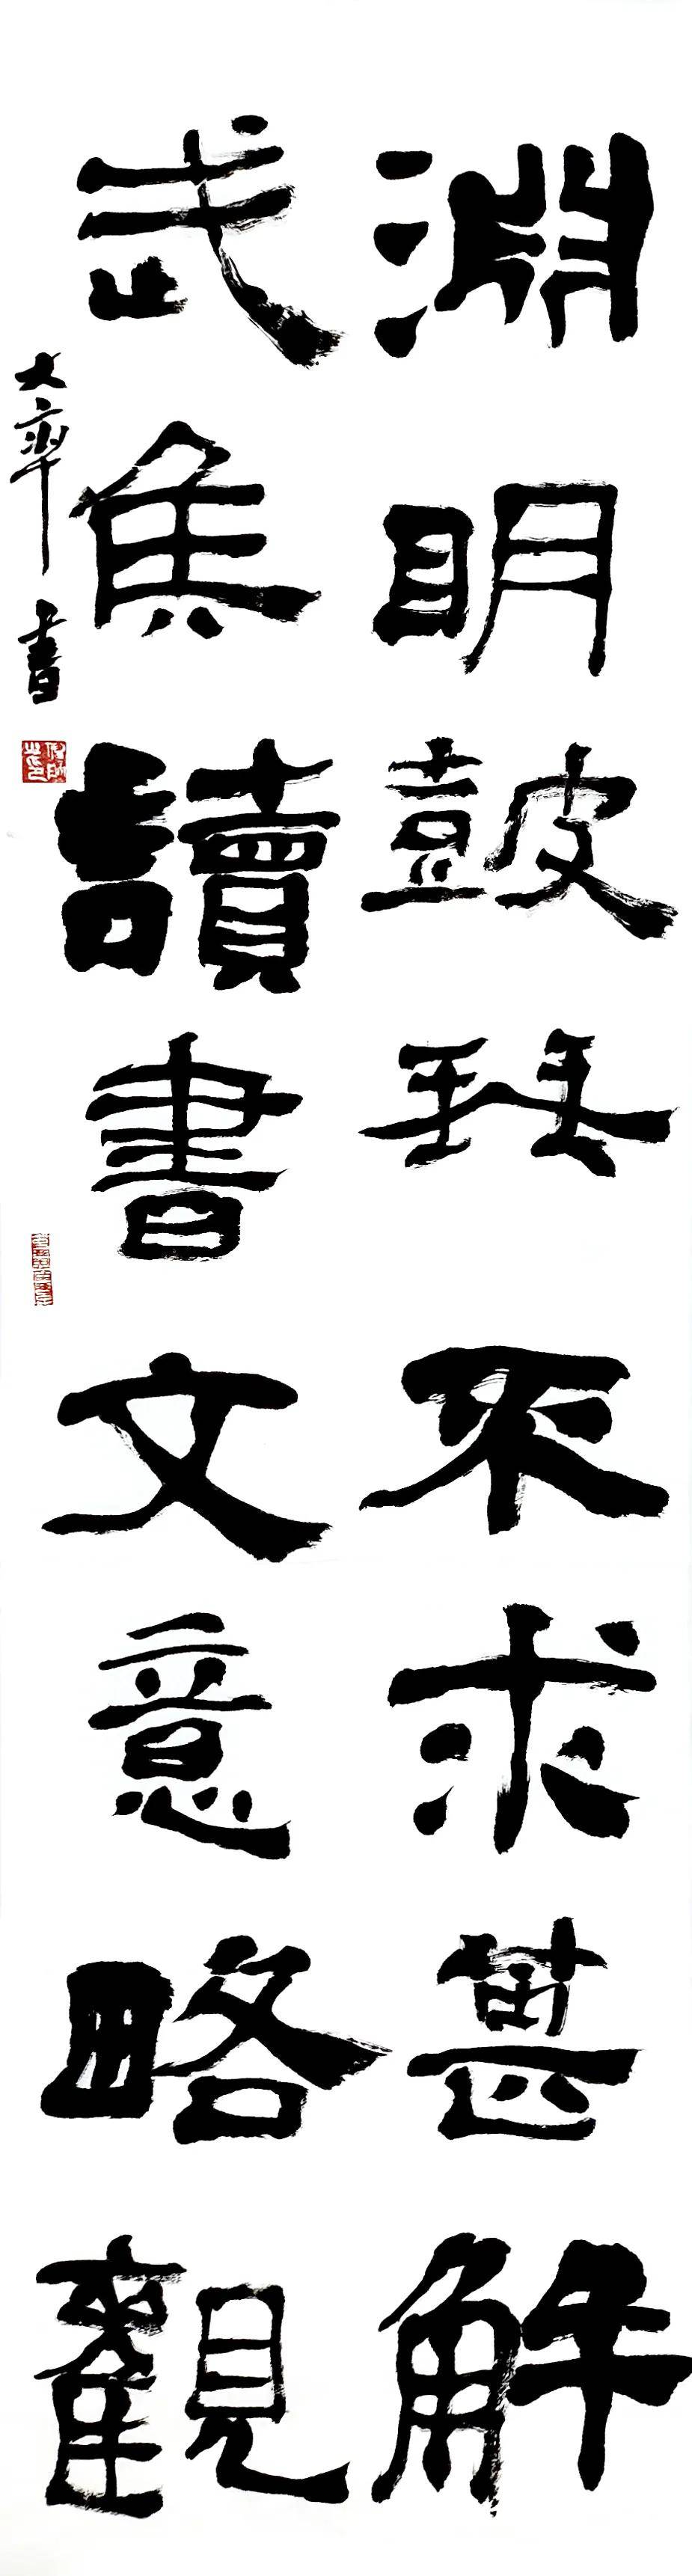 淵明皷琴不求甚解
武侯讀書文意略觀
大率書